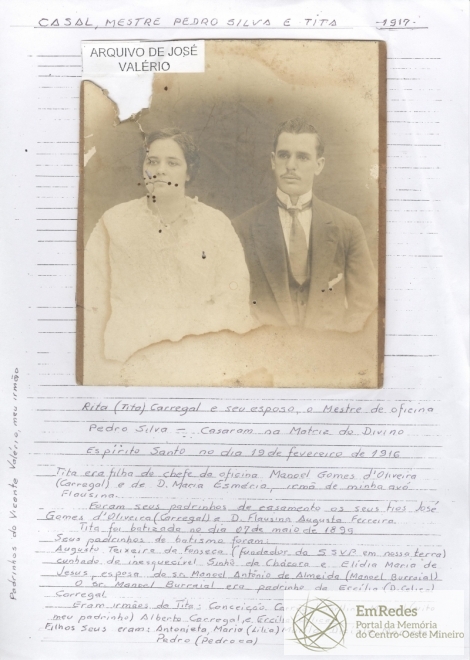 CASAL, MESTRE PEDRO SILVA E TITA -1917-
ARQUIVO DE JOSÉ
VALÉRIO
Rita (Tita) Carregal e seu esposo, o Mestre de oficina
Pedro Silva - Casaram na Matriz do Divino
Espírito Santo no dia 19 de fevereiro de 1916
Tita era filha do chefe da oficina Manoel Gomes d'Oliveira
(Carregal) e de D. Maria Esmeria, irmã de minha avó
Flausina.
Foram seus padrinhos de casamento os seus tios José
Gomes d'Oliveira (Carregal) e D. Flausina Augusta Ferreira.
Tita foi batizada no dia 07 de maio de 1899
Seus padrinhos de batismo foram:
Augusto Teixeira da Fonseca (fundador da SSVP em nossa terra)
cunhado da inesquecível Sinhá da Chácara e Elidia Maria de
Jesus, esposa do sr. Manoel Antônio de Almeida (Manoel Burraial)
O Sr. Manoel Burraial era padrinho da Ercília
Carregal
Eram irmãos da Tita: Conceição
meu padrinho) Alberto Carregal, e
Filhos seus eram: Antonieta, Maria (Lilia)
Pedro (Pedrosa)
Padrinhos do Vicente Valério, meu irmão
EmRedes
Portal da Memória
do Centro-Oeste Mineiro